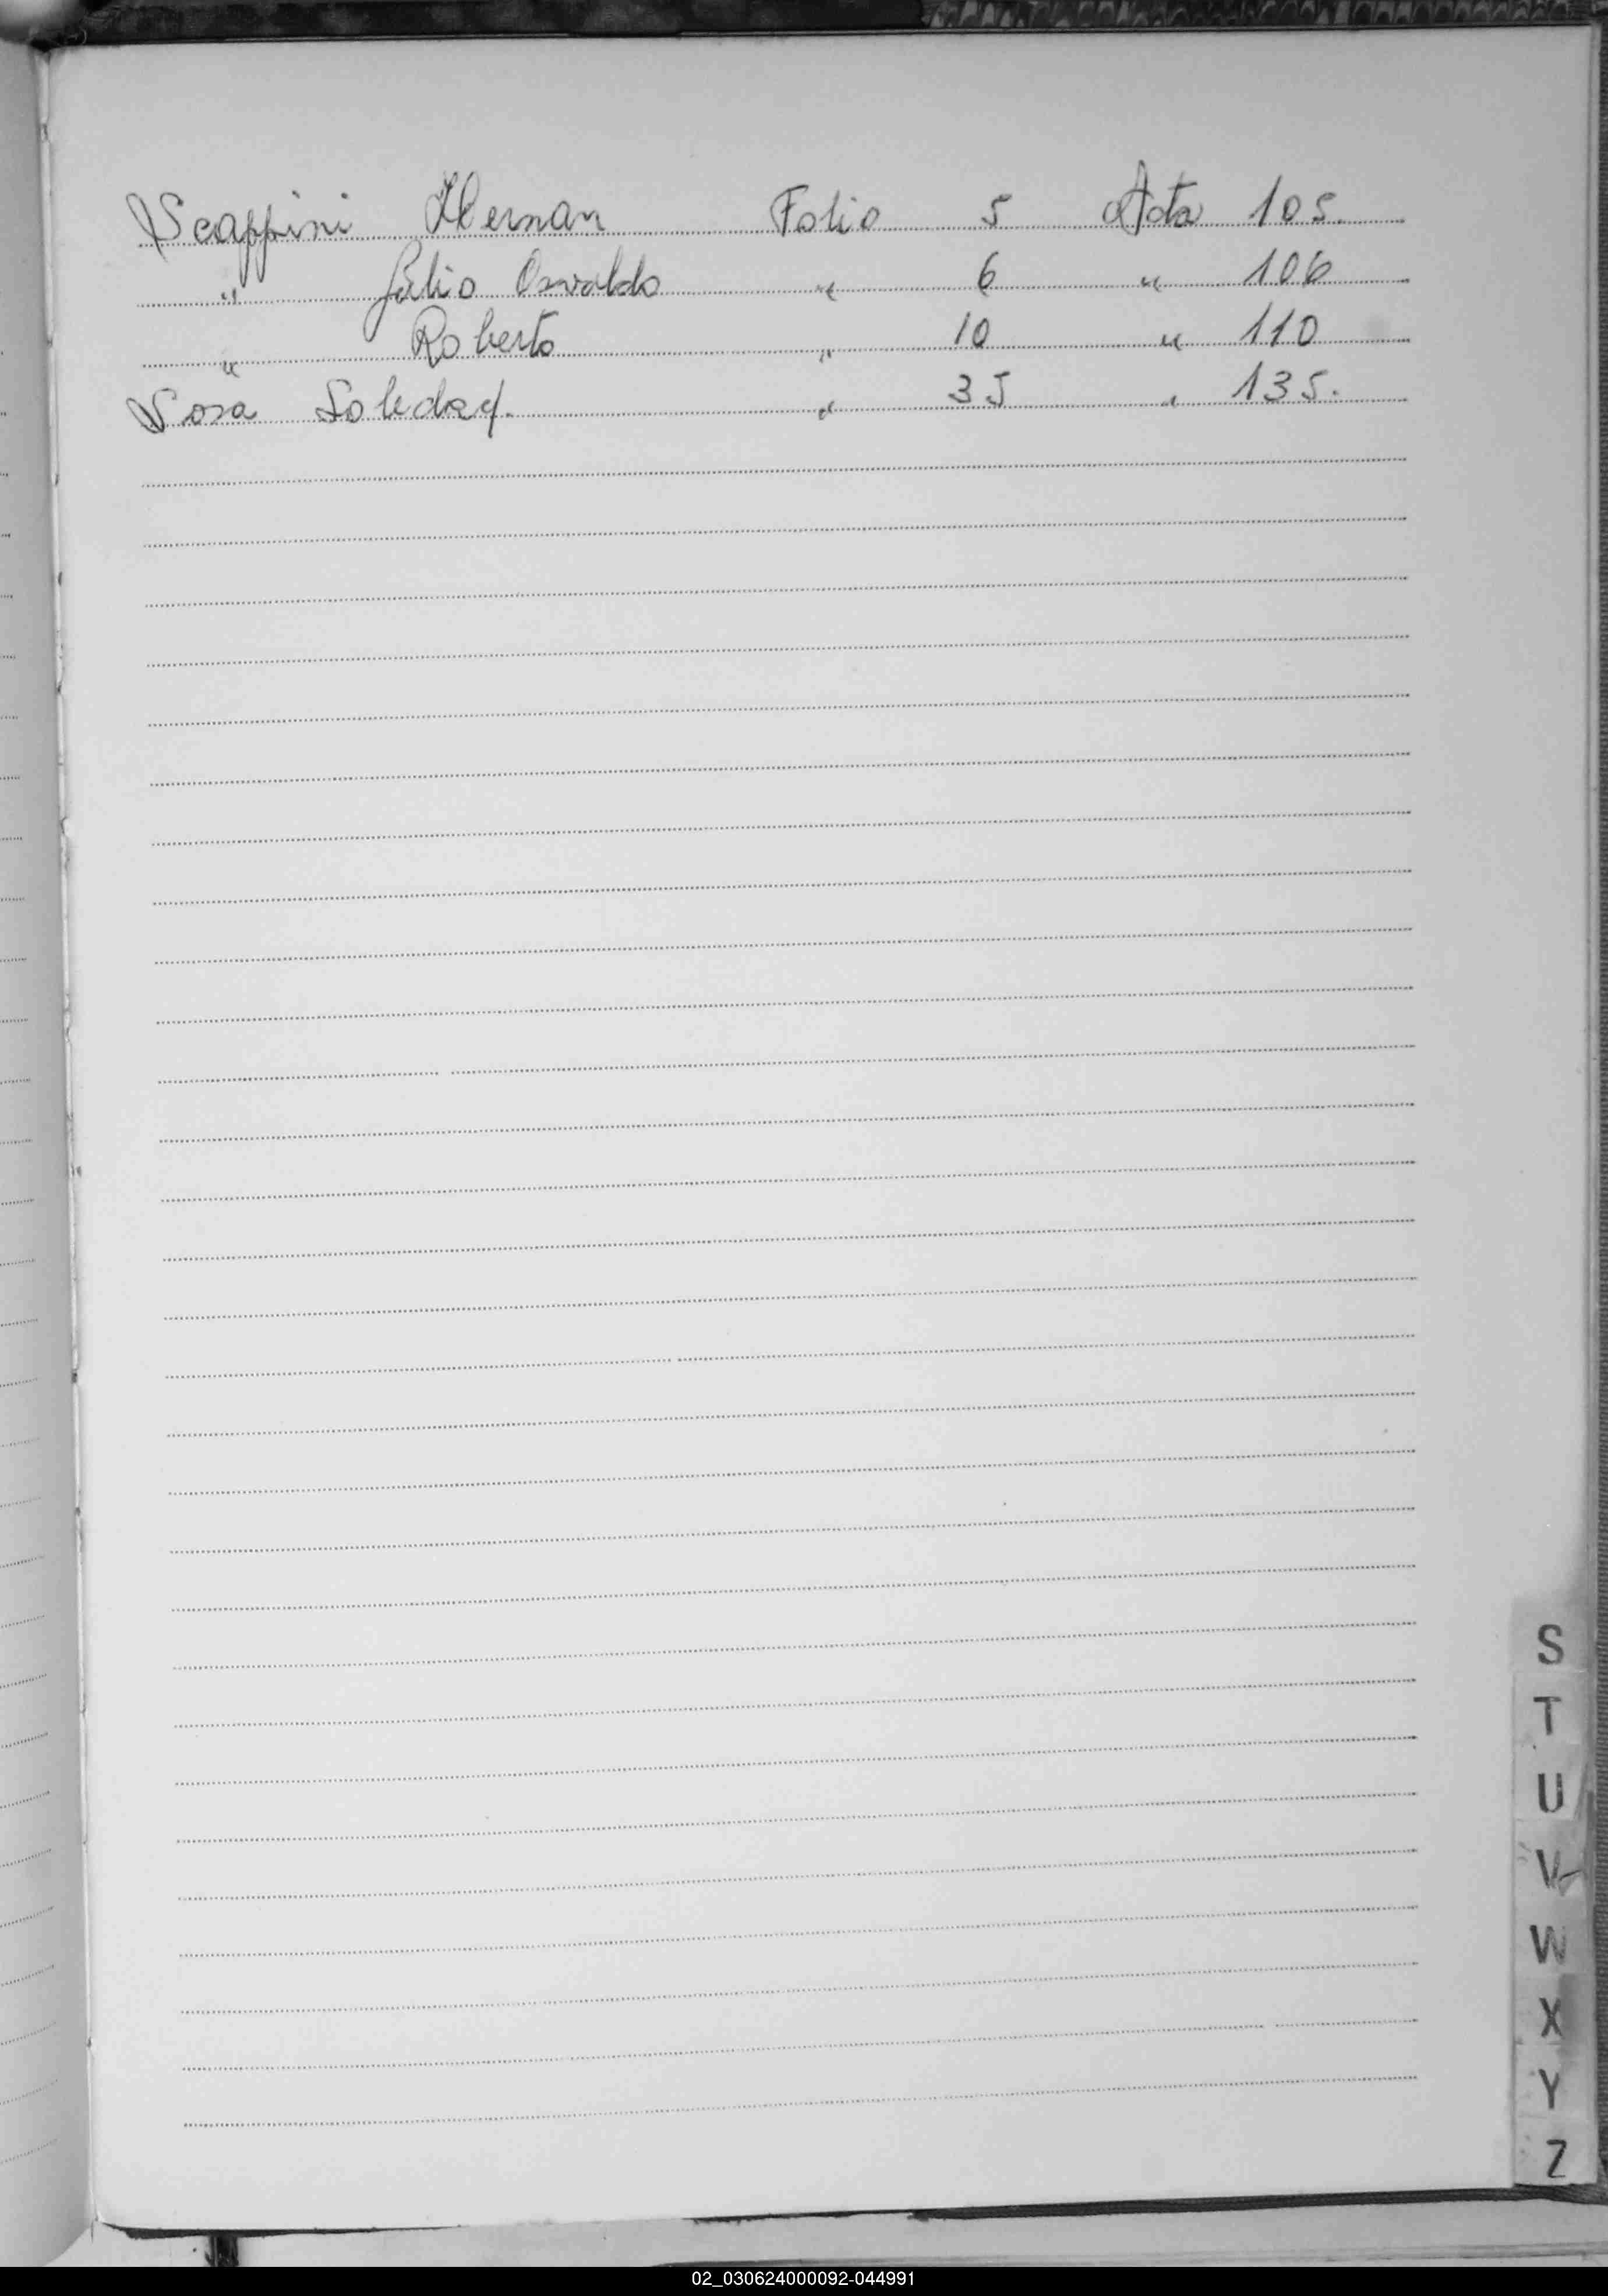 Scappini Hernan Folio 5 Acta 105.
" Julio Osvaldo " 6 " 106
" Roberto " 10 " 110
Sosa Soledad. " 35 " 135.
S
T
U
V
W
X
Y
Z
02_030624000092-044991